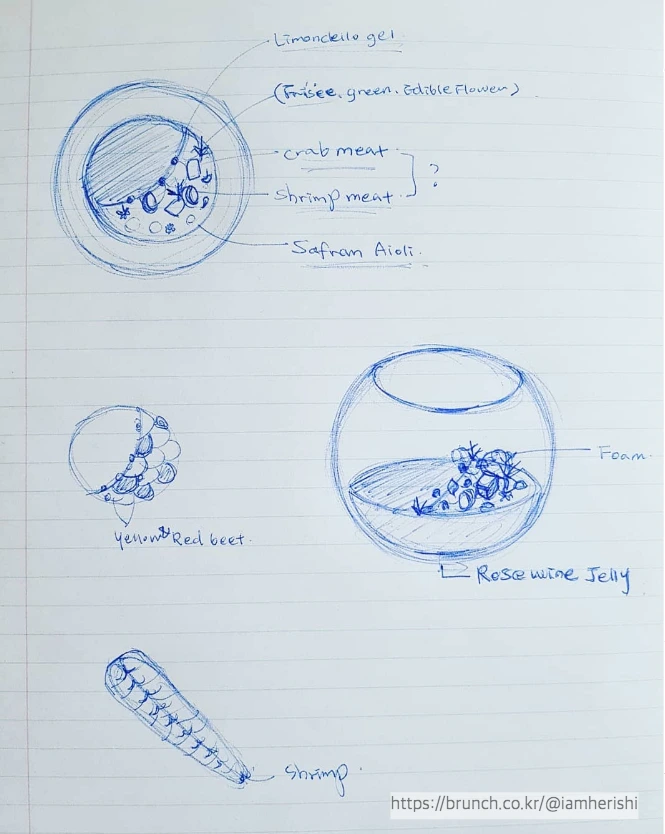 Limoncello gel
(Frisée, green, Edible Flower)
crab meat
?
shrimp meat
Safran Aioli.
Foam.
Yellow & Red beet.
Rose wine Jelly
shrimp.
https://brunch.co.kr/@iamherishi